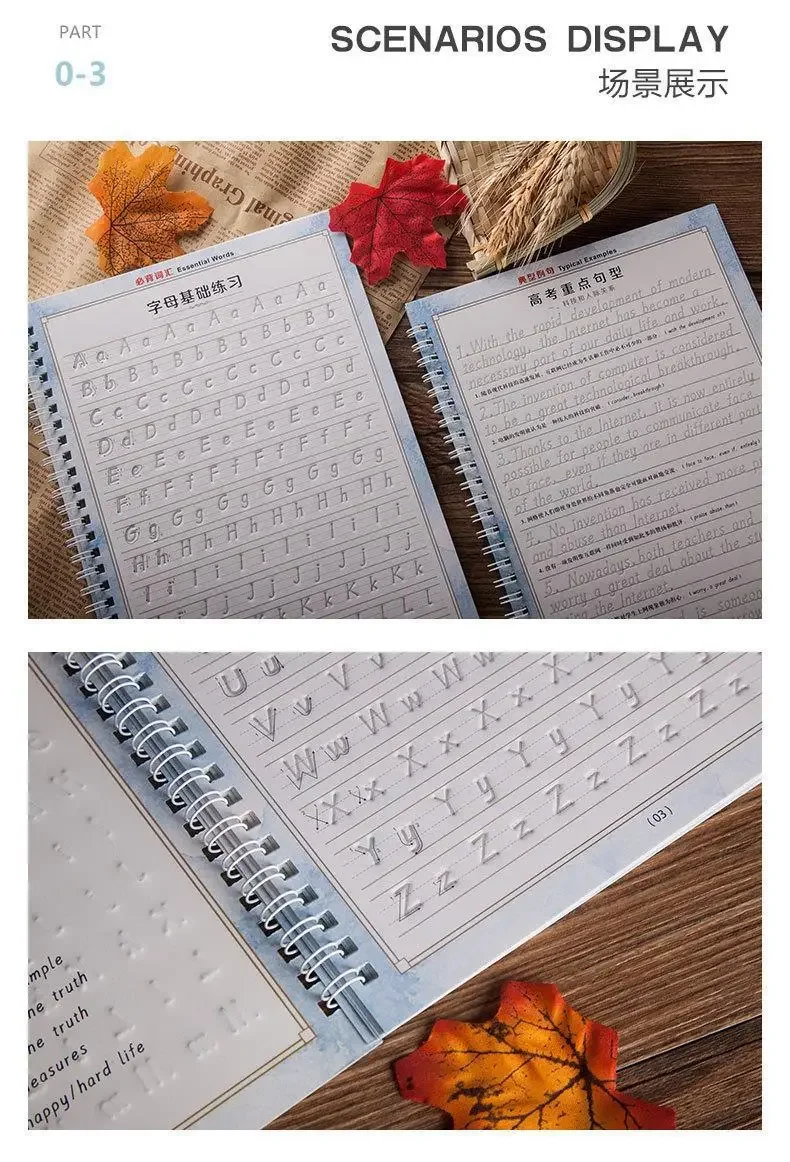 PART
0-3
SCENARIOS DISPLAY
场景展示
Original Graphing
必背词汇 Essential Words
字母基础练习
Aa A a A a A a A a
Bb B b B b B b B b B b
Cc C c C c C c C c C c
Dd D d D d D d D d D d
Ee E e E e E e E e E e
Ff F f F f F f F f F f
Gg G g G g G g G g
Hh H h H h H h H h H h
I i I i I i I i I i I i
J j J j J j J j J j
K k K k K k
L l
典型例句 Typical Examples
高考重点句型
科技和人际关系
1. With the rapid development of modern
technology, the Internet has become a
necessary part of our daily life and work.
(with the development of)
2. The invention of computer is considered
to be a great technological breakthrough.
2. 电脑的发明被认为是一种伟大的科技的突破。(consider, breakthrough)
3. Thanks to the Internet, it is now entirely
possible for people to communicate face
to face, even if they are in different part
of the world.
(face to face, even if, entirely)
4. No invention has received more p
and abuse than Internet.
(praise abuse, than)
5. Nowadays, both teachers and
worry a great deal about the stu
ing the Internet.
(worry, a great deal)
is someon
Uu
Vv V v
Ww W w W w W w
Xx X x X x X x
Yy Y y Y y Y y Y y
Zz Z z Z z Z z Z z
(03)
mple
he truth
he truth
easures
happy/hard life